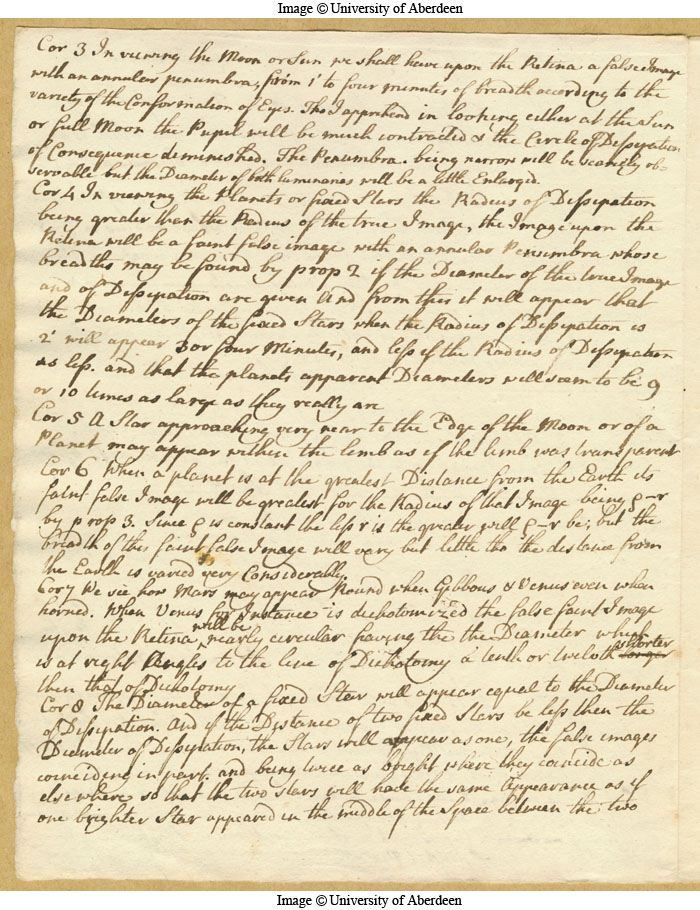 Image © University of Aberdeen
Cor 3 In viewing the Moon or Sun we shall have upon the Retina a false Image
with an annular penumbra, from 1' to four minutes of breadth according to the
variety of the Conformation of Eyes. Tho I apprehend in looking either at the Sun
or full Moon the Pupil will be much contracted & the Circle of Dissipation
of Consequence deminished. The Penumbra being narrow will be scarcely ob-
servable but the Diameter of both luminaries will be a little Enlarged.
Cor 4 In viewing the Planets or fixed Stars the Radius of Dissipation
being greater than the Radius of the true Image, the Image upon the
Retina will be a faint false image with an annular Penumbra whose
breadths may be found by prop 2 if the Diameter of the true Image
and of Dissipation are given And from this it will appear that
the Diameters of the fixed Stars when the Radius of Dissipation is
2' will appear 3 or four Minutes, and less if the Radius of Dissipation
is less. and that the planets apparent Diameters will seem to be 9
or 10 times as large as they really are
Cor 5 A Star approaching very near to the Edge of the Moon or of a
Planet may appear within the limb as if the limb was transparent
Cor 6 When a planet is at the greatest Distance from the Earth its
faint false Image will be greatest for the Radius of that Image being ρ-r
by prop 3. Since ρ is constant the less r is the greater will ρ-r be; but the
breadth of this faint false Image will vary but little tho the distance from
the Earth is varied very Considerably.
Cor 7 We see how Mars may appear Round when Gibbous & Venus even when
horned. When Venus for Instance is dichotomized the false faint Image
upon the Retina will be nearly circular having the the Diameter which
is at right Angles to the line of Dichotomy a tenth or twelvth shorter
then that of Dichotomy
Cor 8 The Diameter of a fixed Star will appear equal to the Diameter
of Dissipation. And if the Distance of two fixed Stars be less then the
Diameter of Dissipation, the Stars will appear as one, the false images
coinciding in part. and being twice as bright where they coincide as
elsewhere so that the two stars will have the same Appearance as if
one brighter Star appeared in the middle of the Space between the two
Image © University of Aberdeen